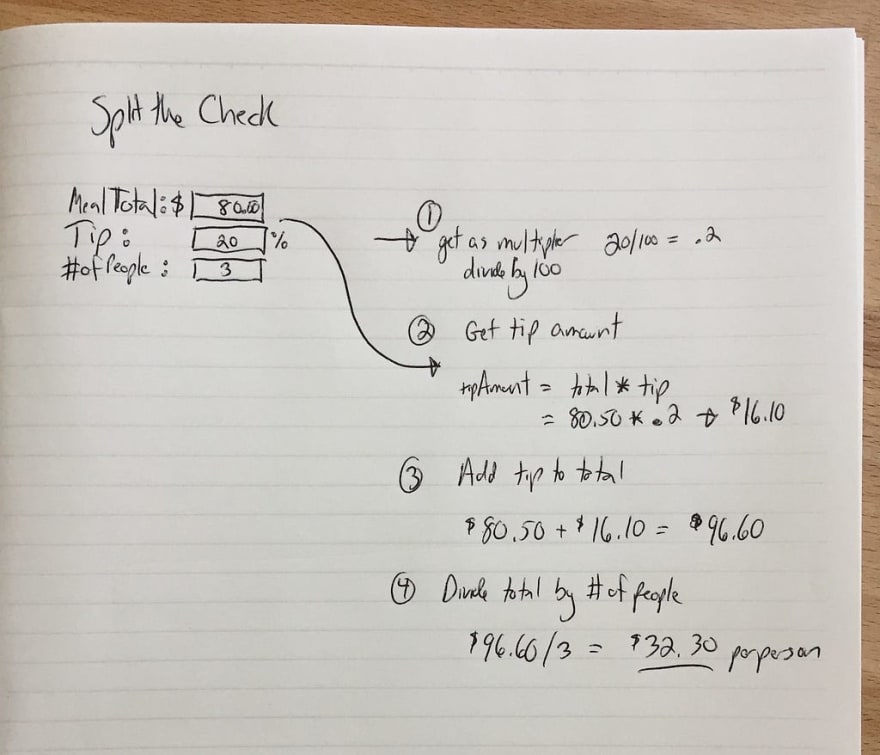 Split the Check
Meal Total: $ 80.00
Tip: 20 %
# of People: 3
①
get as multiplier 20/100 = .2
divide by 100
② Get tip amount
tipAmount = total * tip
= 80.50 * .2 → $16.10
③ Add tip to total
$80.50 + $16.10 = $96.60
④ Divide total by # of people
$96.60/3 = $32.30 per person